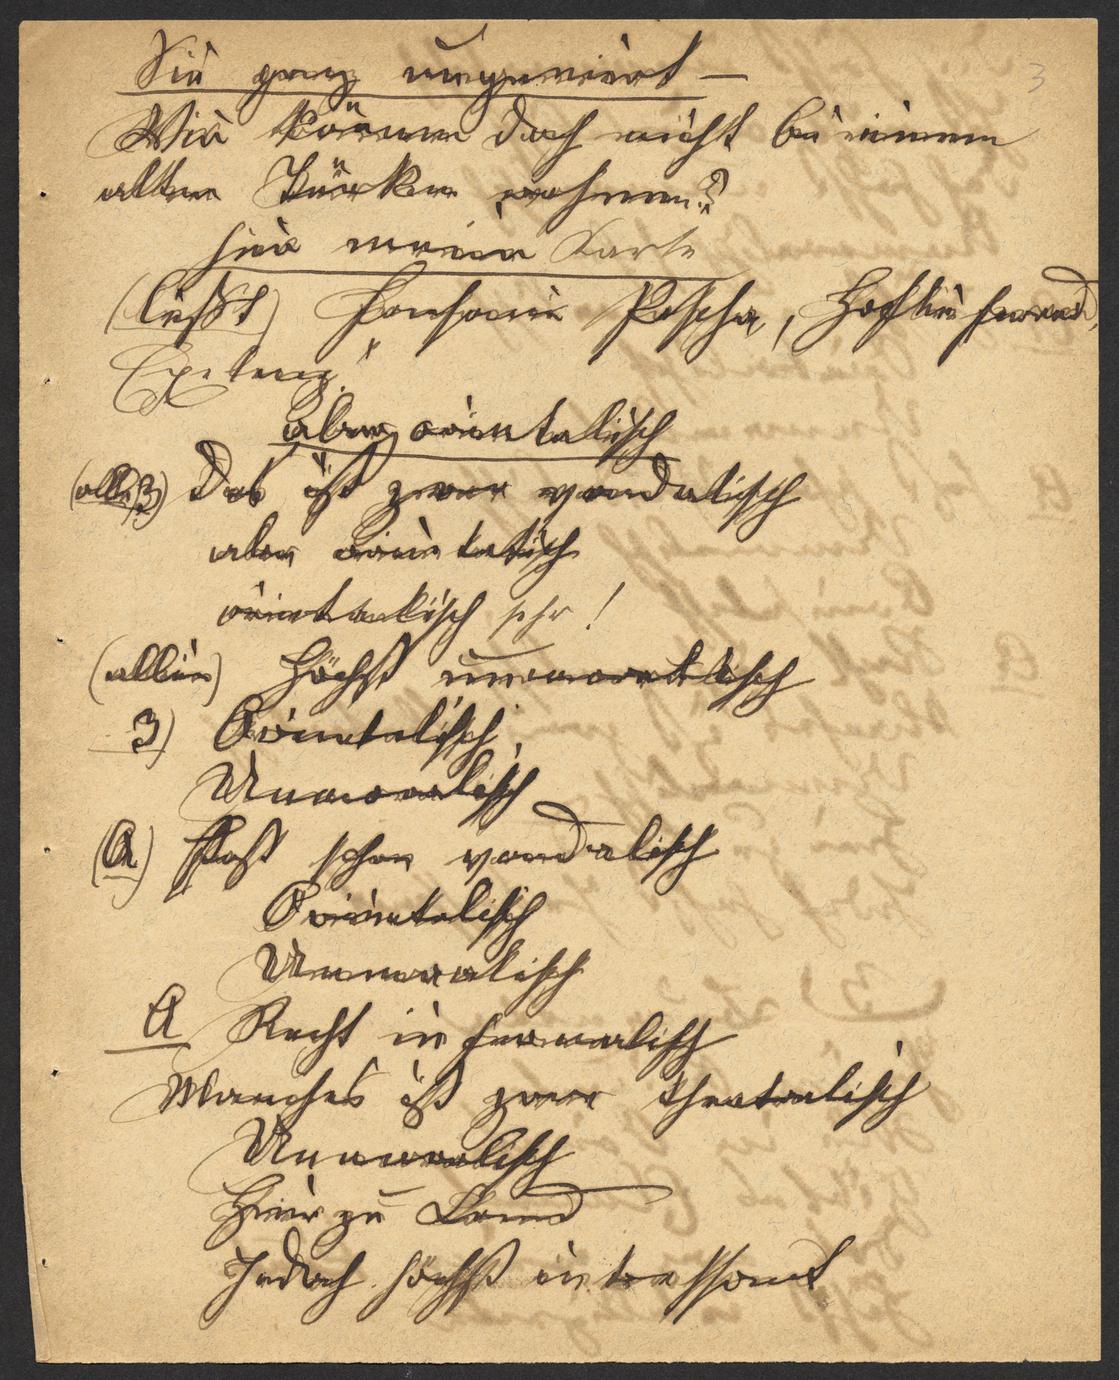 Sie ganz ungeniert —
3
Wir können doch nicht bei einem
alten Türken wohnen?
hier meine Karte
(liest) Pascha,
Exelenz!
aber orientalisch
(alle 3) Das ist zwar vandalisch
aber orientalisch
orientalisch sehr!
(allein) Höchst unmoralisch
3) Orientalisch,
Unmoralisch
(A) Fast schon vandalisch
Orientalisch
Unmoralisch
A Recht infernalisch
Manches ist zwar theatralisch
Unmoralisch
Hier zu Land
Jedoch höchst interessant